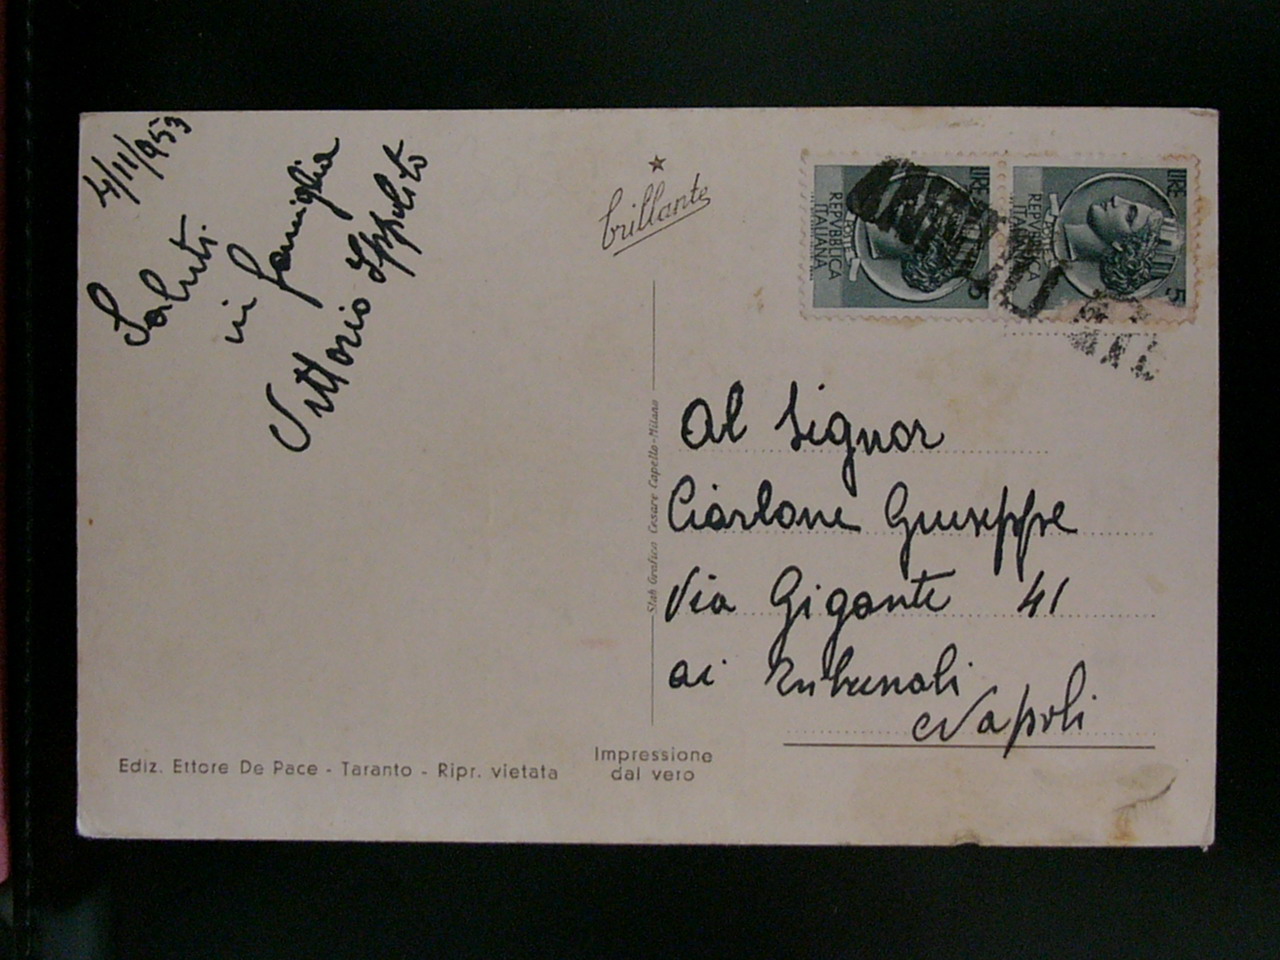 4/11/953
Saluti
in famiglia
Vittorio Ippolito
brillante
LIRE 5
REPVBBLICA
ITALIANA
LIRE 5
REPVBBLICA
ITALIANA
Stab Grafico Cesare Capello-Milano
Al Signor
Ciarlone Giuseppe
Via Gigante 41
ai Tribunali
Napoli
Ediz. Ettore De Pace - Taranto - Ripr. vietata
Impressione
dal vero